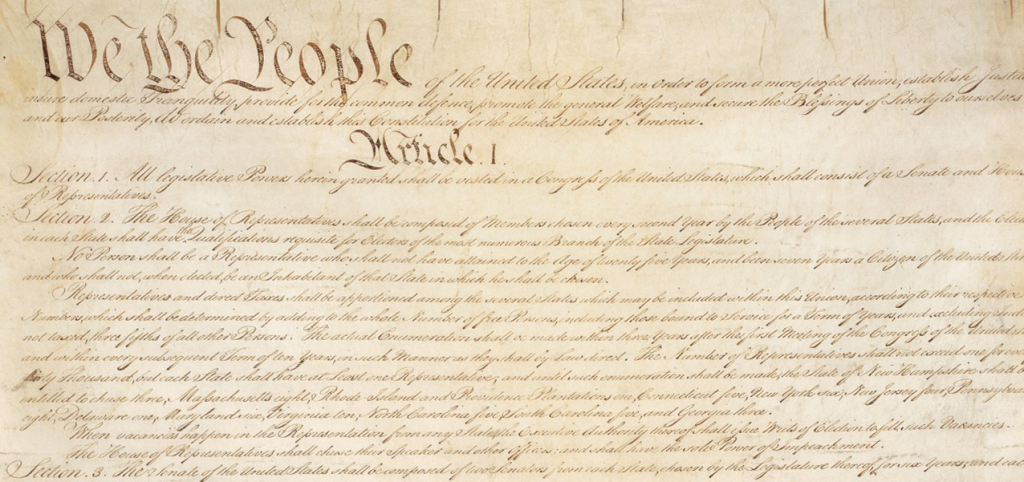 We the People of the United States, in Order to form a more perfect Union, establish Justi
insure domestic Tranquility, provide for the common defence, promote the general Welfare, and secure the Blessings of Liberty to ourselves
and our Posterity, do ordain and establish this Constitution for the United States of America.
Article. I.
Section. 1. All legislative Powers herein granted shall be vested in a Congress of the United States, which shall consist of a Senate and House
of Representatives.
Section. 2. The House of Representatives shall be composed of Members chosen every second Year by the People of the several States, and the Elec
in each State shall have the Qualifications requisite for Electors of the most numerous Branch of the State Legislature.
No Person shall be a Representative who shall not have attained to the Age of twenty five Years, and been seven Years a Citizen of the United Sta
and who shall not, when elected, be an Inhabitant of that State in which he shall be chosen.
Representatives and direct Taxes shall be apportioned among the several States which may be included within this Union, according to their respective
Numbers, which shall be determined by adding to the whole Number of free Persons, including those bound to Service for a Term of Years, and excluding Indi
not taxed, three fifths of all other Persons. The actual Enumeration shall be made within three Years after the first Meeting of the Congress of the United
and within every subsequent Term of ten Years, in such Manner as they shall by Law direct. The Number of Representatives shall not exceed one for eve
thirty Thousand, but each State shall have at Least one Representative; and until such enumeration shall be made, the State of New Hampshire shall
entitled to chuse three, Massachusetts eight, Rhode Island and Providence Plantations one, Connecticut five, New York six, New Jersey four, Pennsylvan
eight, Delaware one, Maryland six, Virginia ten, North Carolina five, South Carolina five, and Georgia three.
When vacancies happen in the Representation from any State, the Executive Authority thereof shall issue Writs of Election to fill such Vacancies.
The House of Representatives shall chuse their Speaker and other Officers; and shall have the sole Power of Impeachment.
Section. 3. The Senate of the United States shall be composed of two Senators from each State, chosen by the Legislature thereof, for six Years; and eac